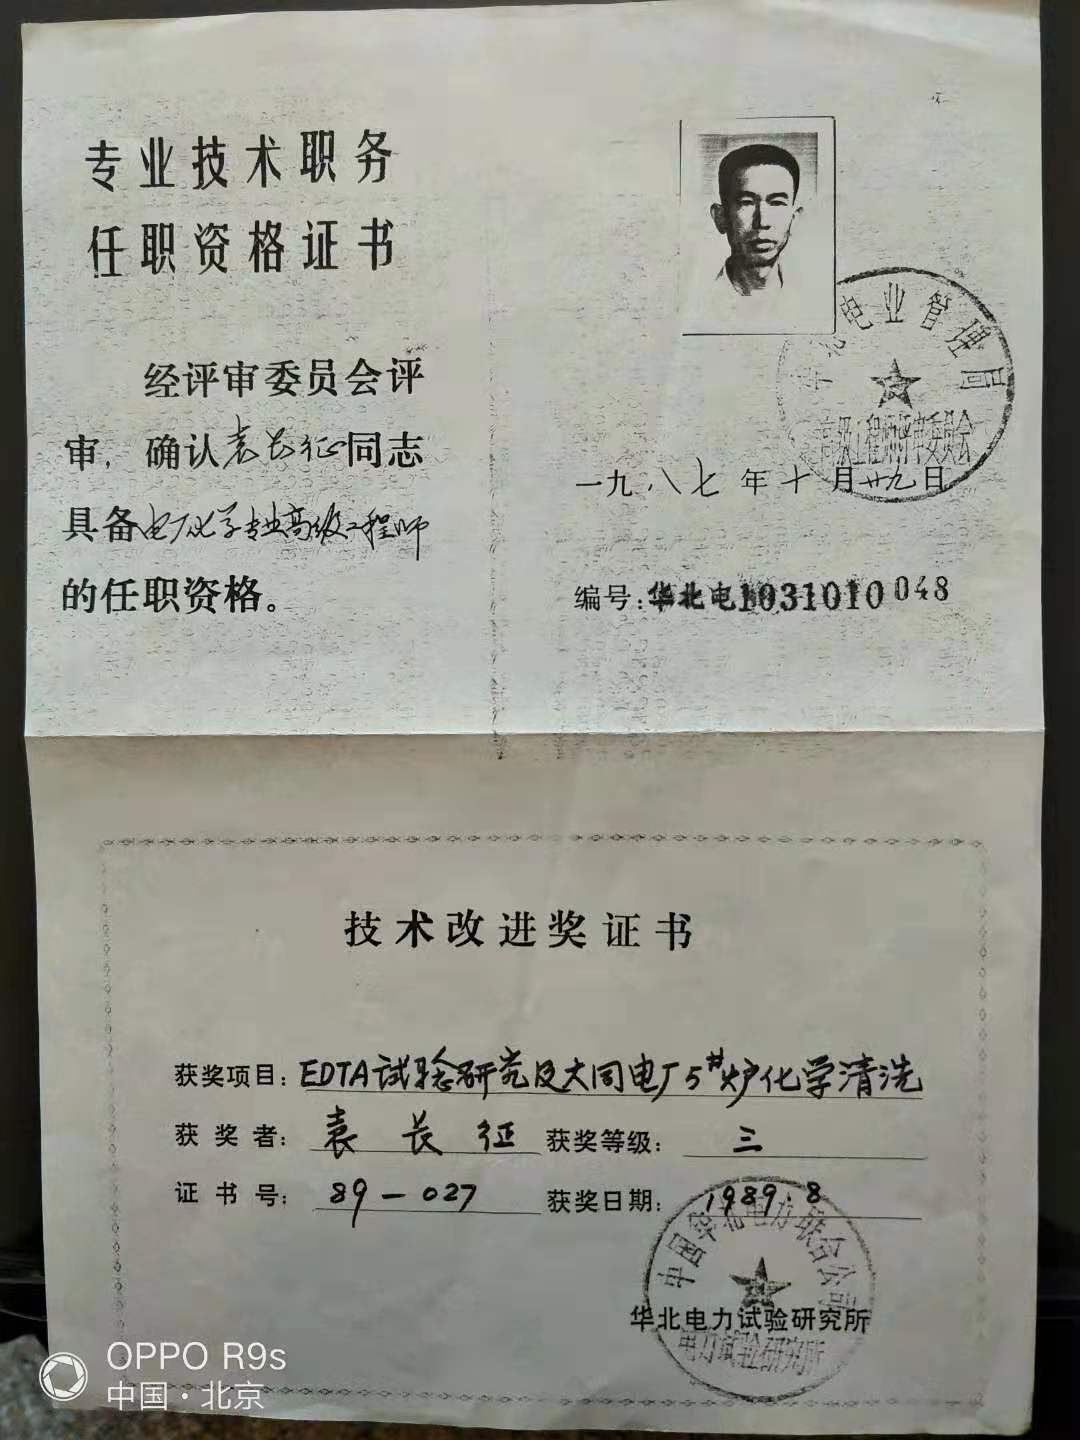 专业技术职务
任职资格证书
经评审委员会评
审，确认袁长征同志
具备电厂化学专业高级工程师
的任职资格。
华北电业管理局
高级工程师评审委员会
一九八七年十月廿九日
编号：华北电1031010048
技术改进奖证书
获奖项目：EDTA试验研究及大同电厂5#炉化学清洗
获奖者：袁长征 获奖等级：三
证书号：89-027 获奖日期：1989.8
中国华北电力联合公司
华北电力试验研究所
电力试验研究所
OPPO R9s
中国·北京